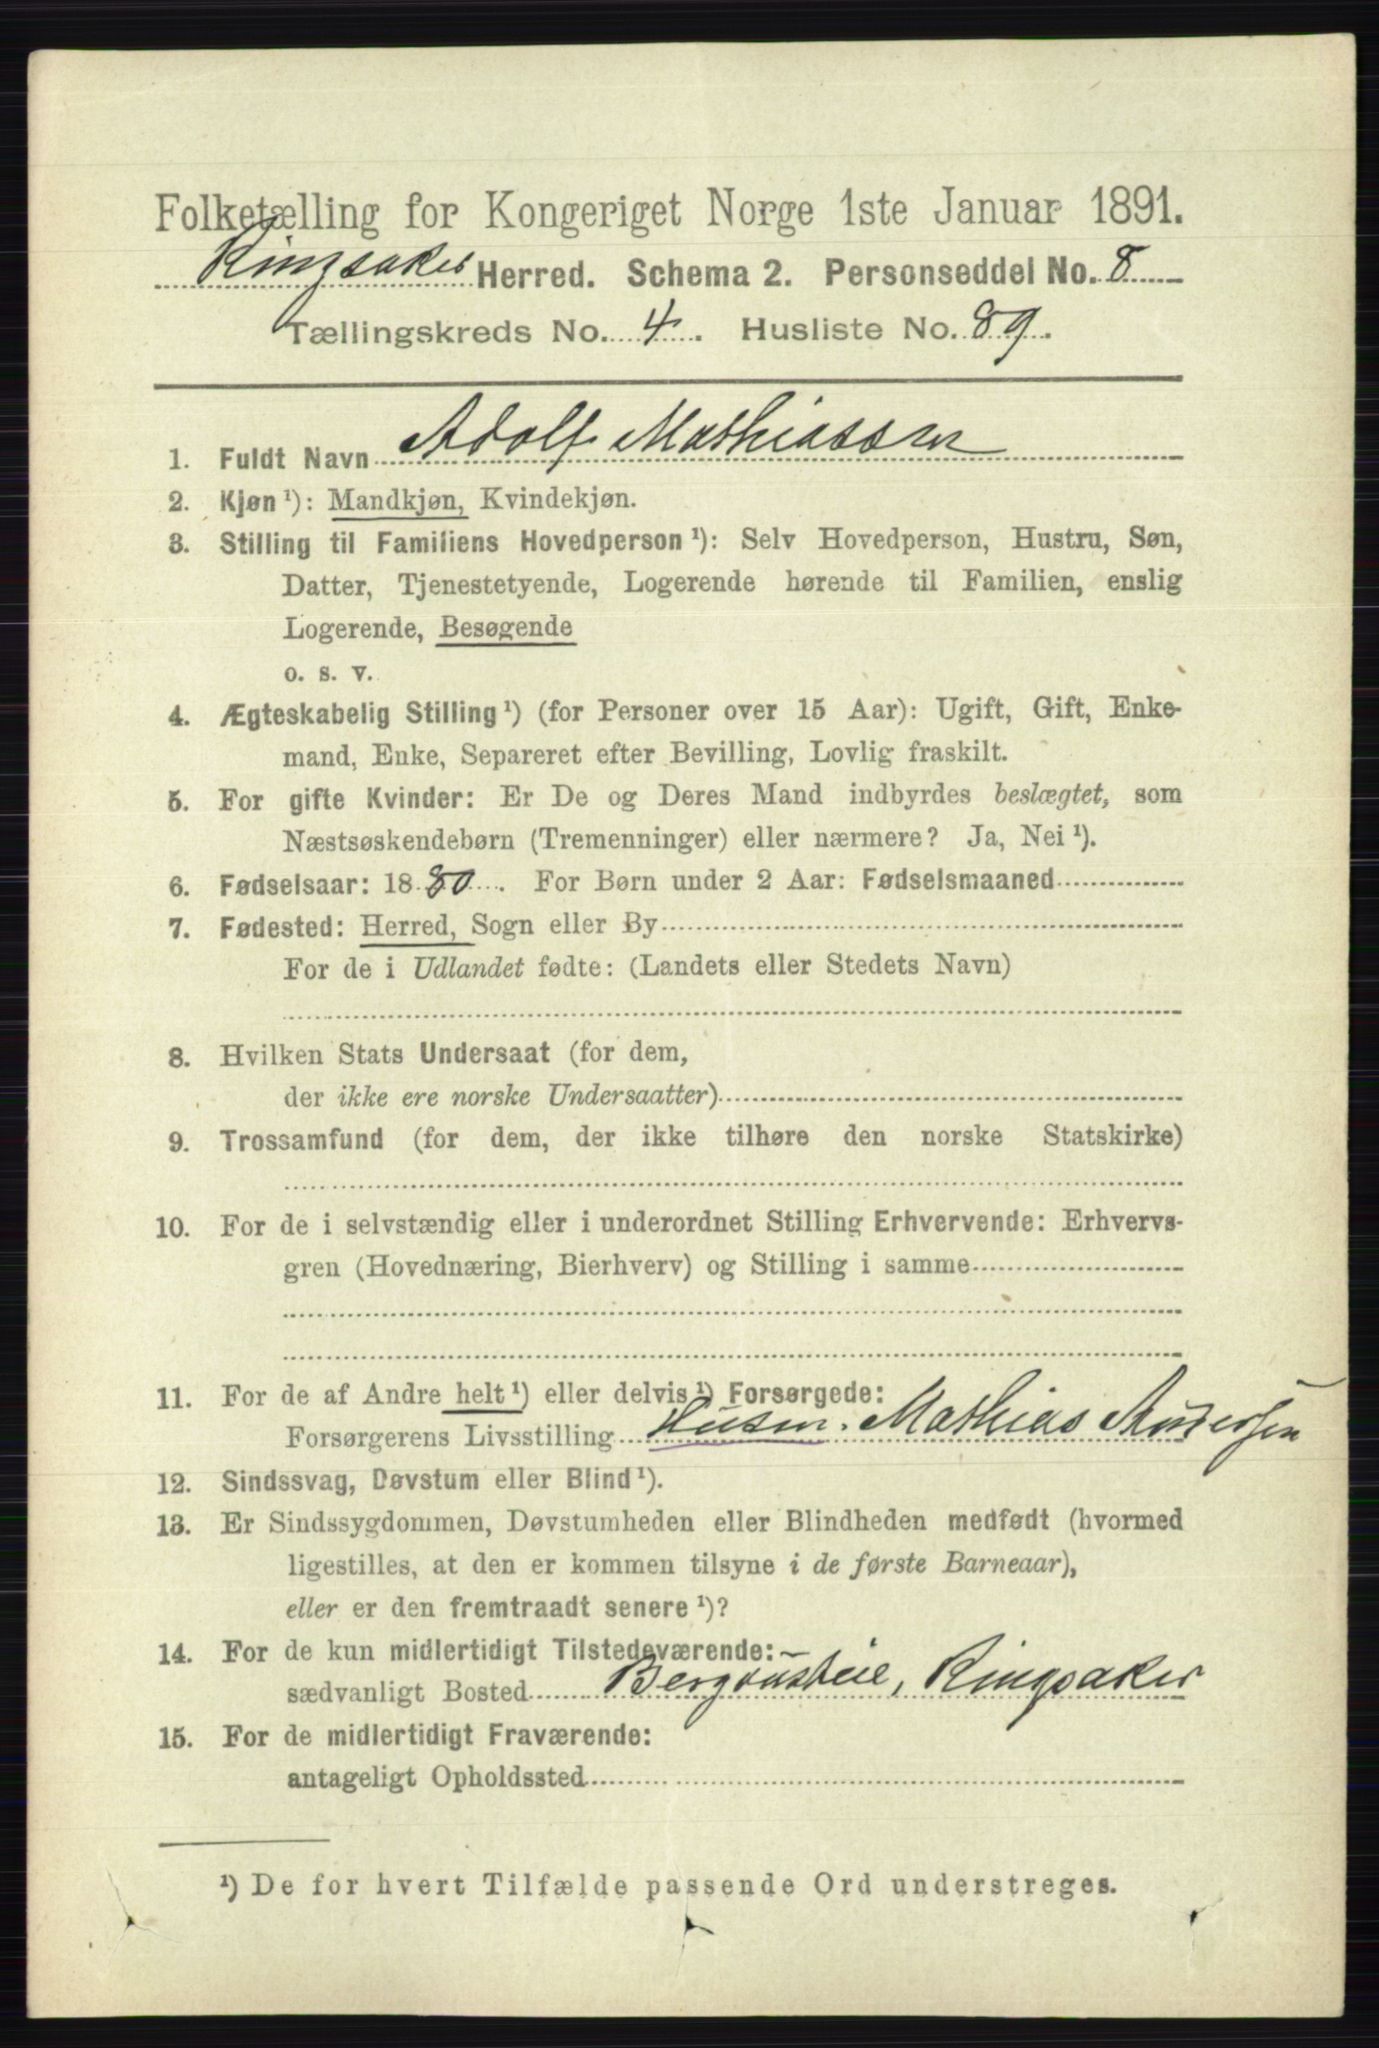 Folketælling for Kongeriget Norge 1ste Januar 1891.
Ringsaker Herred. Schema 2. Personseddel No. 8
Tællingskreds No. 4. Husliste No. 89.
1. Fuldt Navn Adolf Mathiassen
2. Kjøn ¹): Mandkjøn, Kvindekjøn.
3. Stilling til Familiens Hovedperson ¹): Selv Hovedperson, Hustru, Søn,
Datter, Tjenestetyende, Logerende hørende til Familien, enslig
Logerende, Besøgende
o. s. v.
4. Ægteskabelig Stilling ¹) (for Personer over 15 Aar): Ugift, Gift, Enke-
mand, Enke, Separeret efter Bevilling, Lovlig fraskilt.
5. For gifte Kvinder: Er De og Deres Mand indbyrdes beslægtet, som
Næstsøskendebørn (Tremenninger) eller nærmere? Ja, Nei ¹).
6. Fødselsaar: 1880. For Børn under 2 Aar: Fødselsmaaned
7. Fødested: Herred, Sogn eller By
For de i Udlandet fødte: (Landets eller Stedets Navn)
8. Hvilken Stats Undersaat (for dem,
der ikke ere norske Undersaatter)
9. Trossamfund (for dem, der ikke tilhøre den norske Statskirke)
10. For de i selvstændig eller i underordnet Stilling Erhvervende: Erhvervs-
gren (Hovednæring, Bierhverv) og Stilling i samme
11. For de af Andre helt ¹) eller delvis ¹) Forsørgede:
Forsørgerens Livsstilling Husm. Mathias Andersen
12. Sindssvag, Døvstum eller Blind ¹).
13. Er Sindssygdommen, Døvstumheden eller Blindheden medfødt (hvormed
ligestilles, at den er kommen tilsyne i de første Barneaar),
eller er den fremtraadt senere ¹)?
14. For de kun midlertidigt Tilstedeværende:
sædvanligt Bosted Ringsaker
15. For de midlertidigt Fraværende:
antageligt Opholdssted
¹) De for hvert Tilfælde passende Ord understreges.